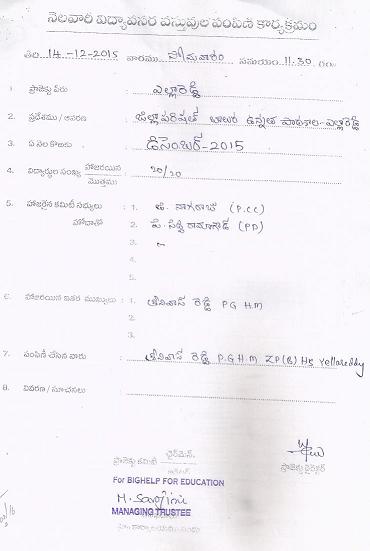 నెలవారి విద్యావసర వస్తువుల పంపిణి కార్యక్రమం
తేది 14-12-2015 వారము సోమవారం సమయం 11.30 గం.
1 ప్రాజెక్టు పేరు : ఎల్లారెడ్డి
2. ప్రదేశము / ఆవరణ : జిల్లా పరిషత్ బాలుర ఉన్నత పాఠశాల- ఎల్లారెడ్డి
3. ఏ నెల కొరకు : డిసెంబర్-2015
4. విద్యార్థుల సంఖ్య హాజరయిన : 20/20
మొత్తము
5. హాజరైన కమిటీ సభ్యులు : 1. నాగరాజ్ (P.CC)
హోదాతో 2. (PD)
3.
4.
5.
6. హాజరయిన ఇతర ముఖ్యులు : 1. శ్రీనివాస్ రెడ్డి PG H.M
2.
3.
7. పంపిణీ చేసిన వారు : శ్రీనివాస్ రెడ్డి P.G.H.M ZP(B) HS Yellareddy
8. వివరణ / సూచనలు :
ప్రాజెక్టు కమిటి ఛైర్మెన్. ప్రాజెక్టు డైరెక్టర్
For BIGHELP FOR EDUCATION
M. Sarojini
MANAGING TRUSTEE